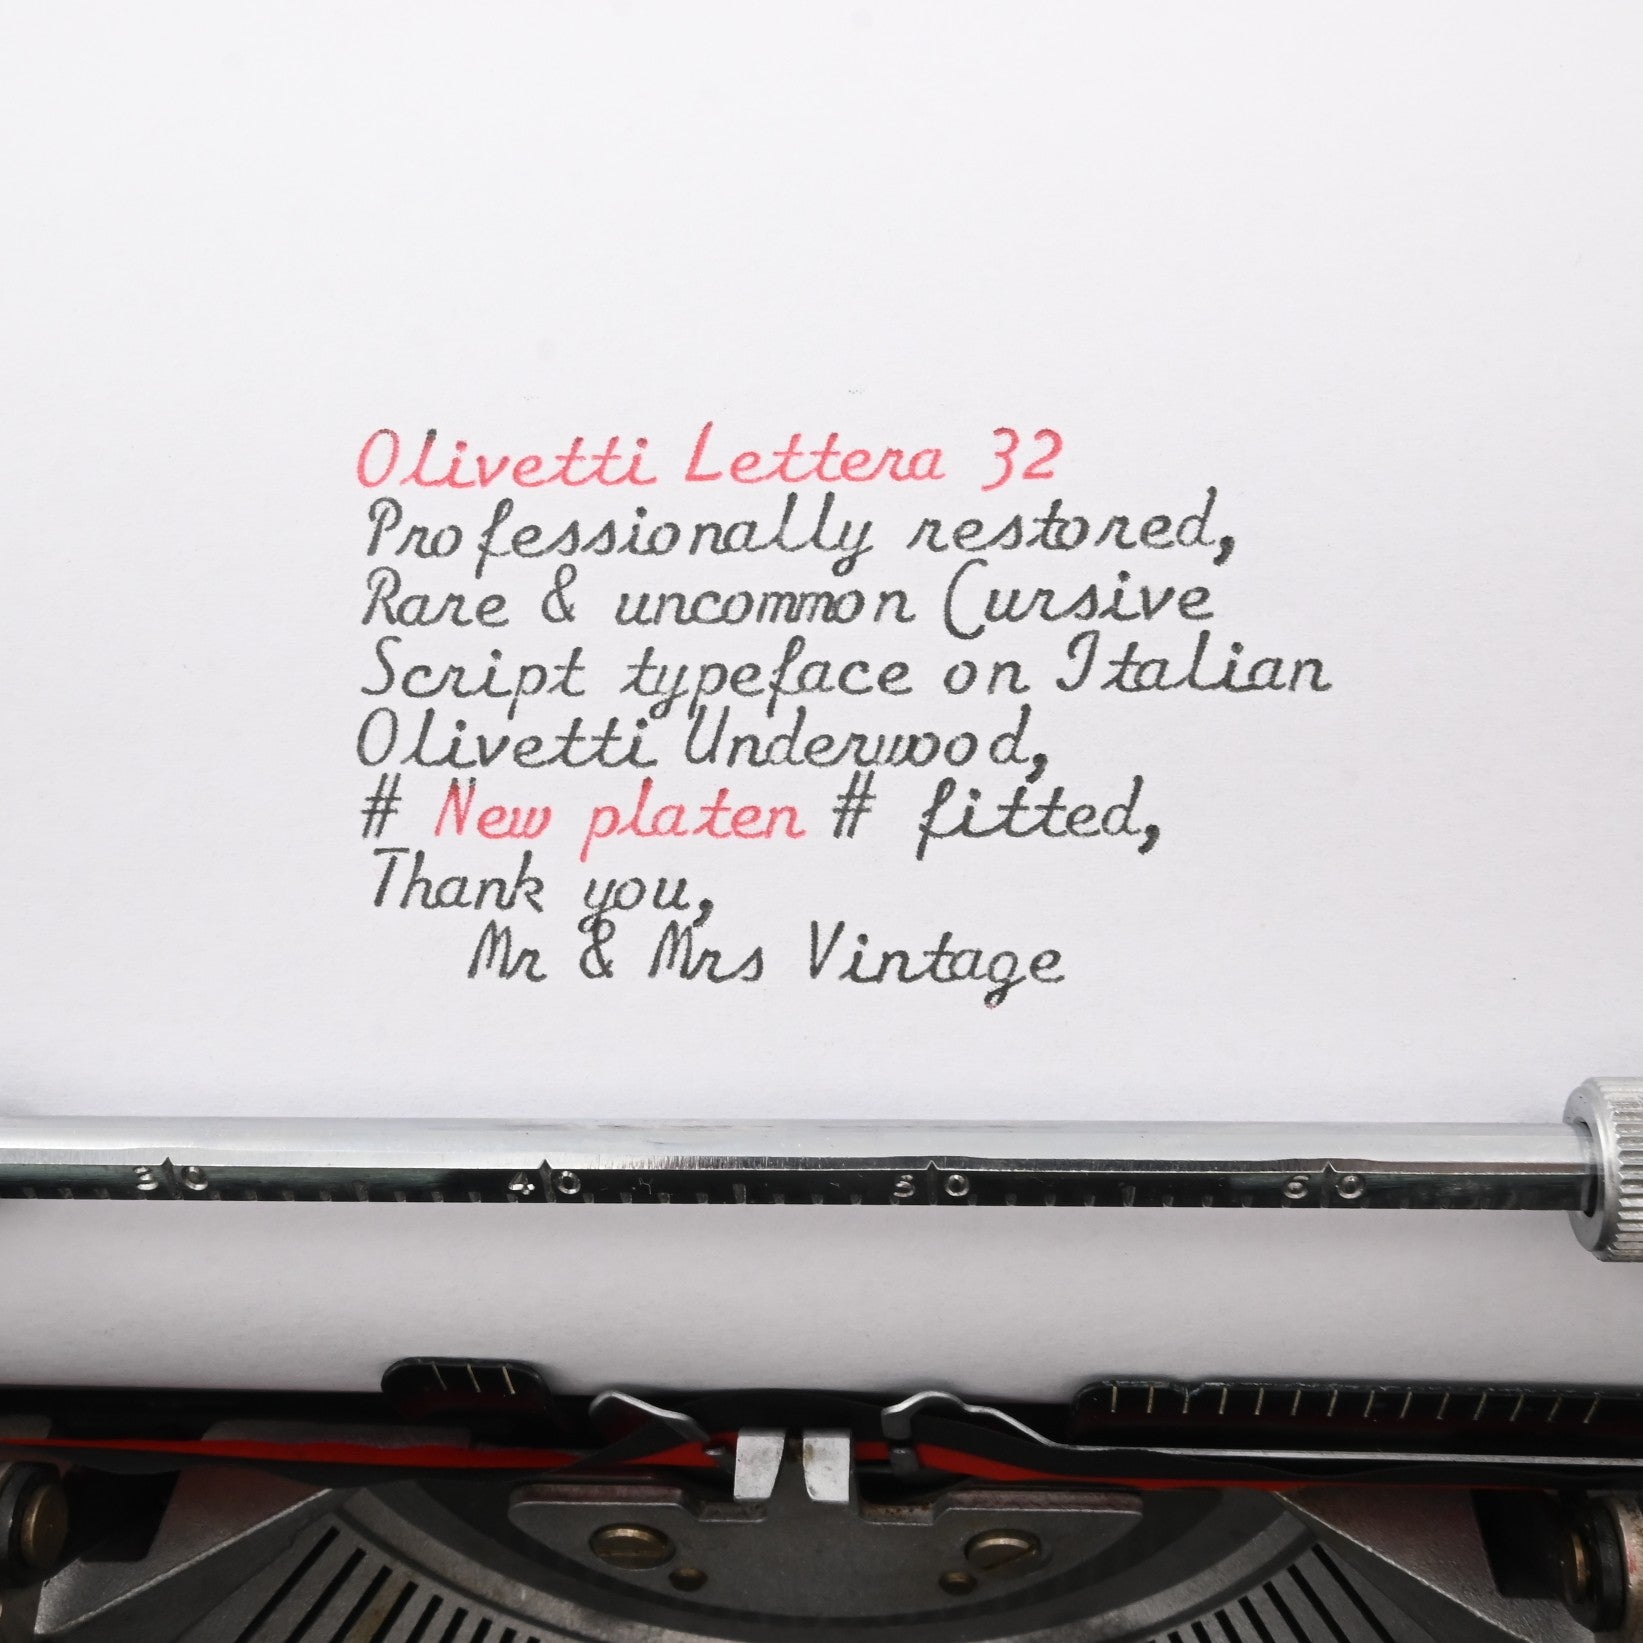 Olivetti Lettera 32
Professionally restored,
Rare & uncommon Cursive
Script typeface on Italian
Olivetti Underwood,
# New platen # fitted,
Thank you,
Mr & Mrs Vintage
30 40 50 60